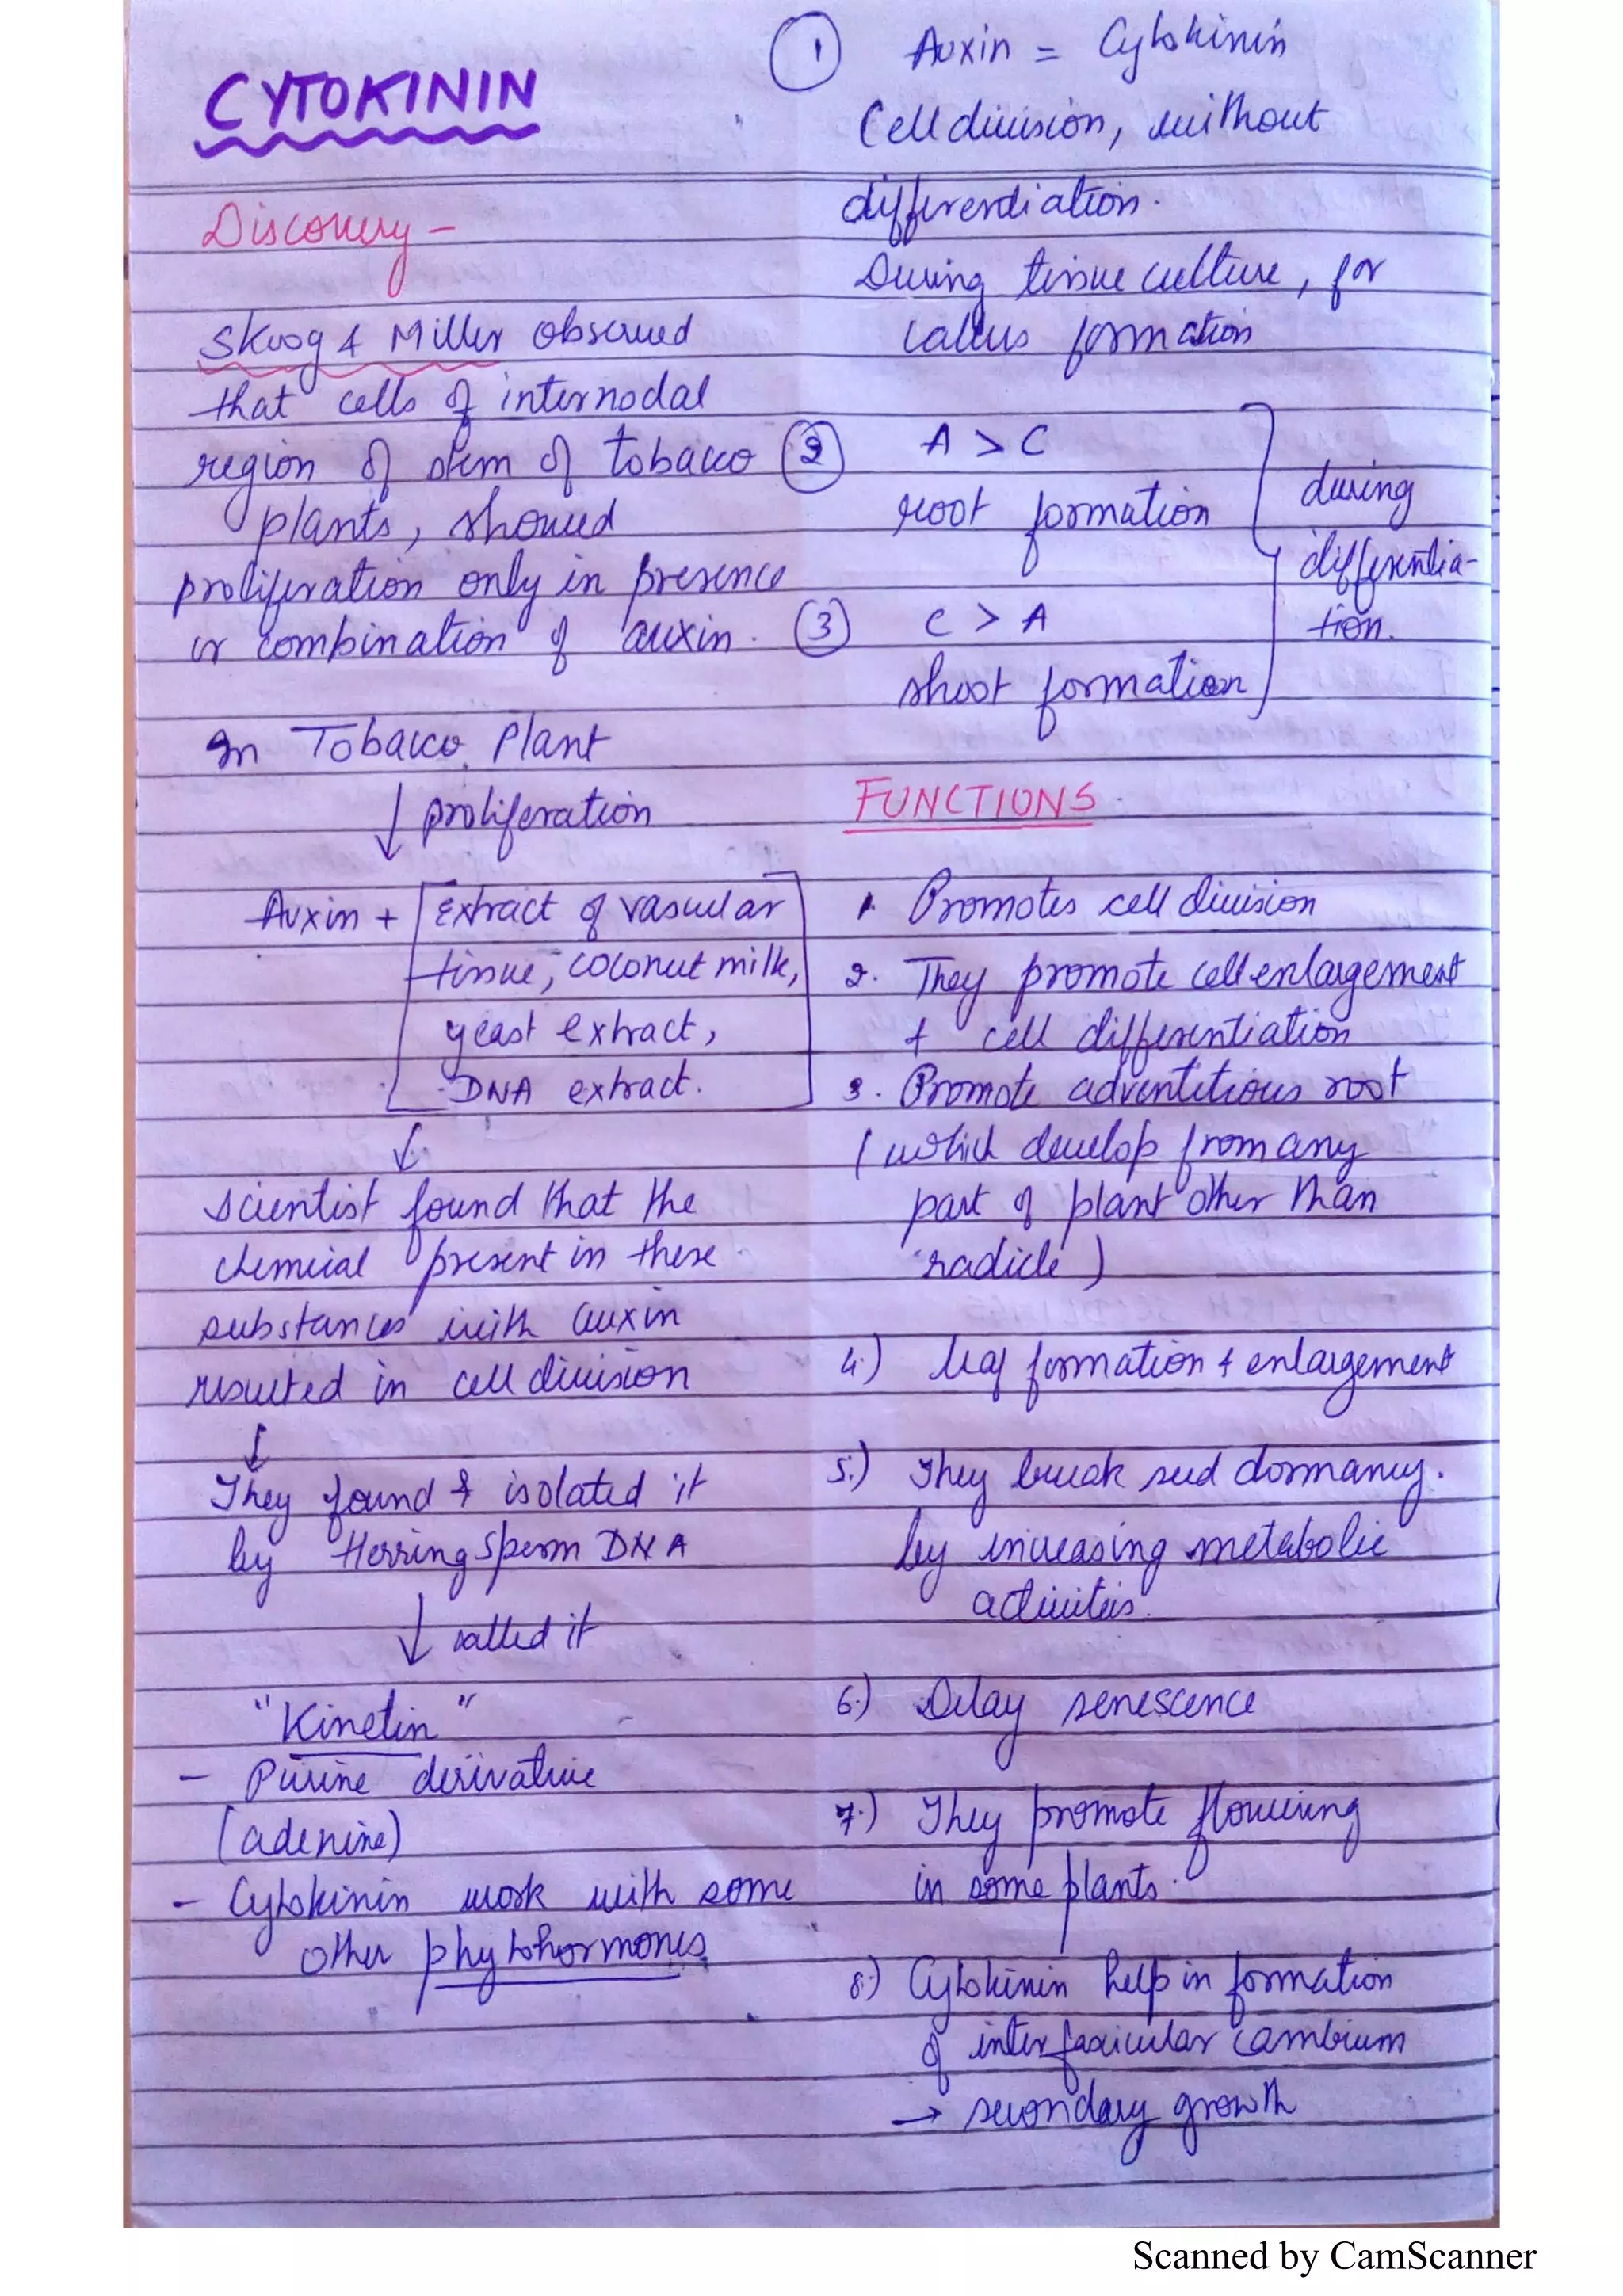 CYTOKININ
Discovery -
Skoog & Miller observed
that cells of internodal
region of stem of tobacco
plants, showed
proliferation only in presence
or combination of auxin.
In Tobacco Plant
↓ proliferation
Auxin + [Extract of vascular
tissue, coconut milk,
yeast extract,
DNA extract.]
↓
scientist found that the
chemical present in these
substances with auxin
resulted in cell division
↓
They found & isolated it
by Herring sperm DNA
↓ called it
"Kinetin"
- Purine derivative
(adenine)
- Cytokinin work with some
other phytohormones.
① Auxin = Cytokinin
Cell division, without
differendiation.
During tissue culture, for
callus formation
② A > C
root formation
③ C > A
shoot formation
during
differentia-
tion.
FUNCTIONS
1. Promotes cell division
2. They promote cell enlargement
+ cell differentiation
3. Promote adventitious root
(which develop from any
part of plant other than
'radicle')
4.) leaf formation & enlargement
5.) They break seed dormancy.
by increasing metabolic
activities.
6.) Delay senescence
7.) They promote flowering
in some plants.
8.) Cytokinin help in formation
of interfascicular cambium
→ secondary growth
Scanned by CamScanner